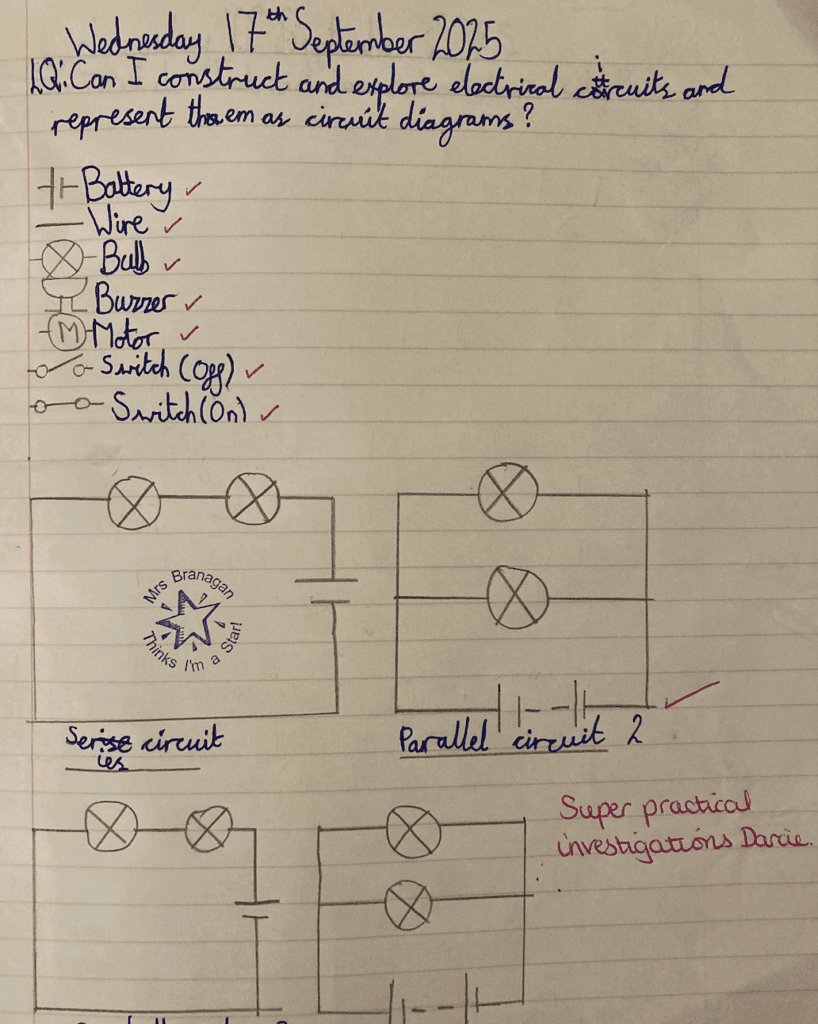 Wednesday 17th September 2025
LQ: Can I construct and explore electrical circuits and
represent them as circuit diagrams?
Battery
Wire
Bulb
Buzzer
M Motor
Switch (Off)
Switch (On)
Mrs Branagan
Thinks I'm a Star!
Series circuit
Parallel circuit 2
Super practical
investigations Darcie.